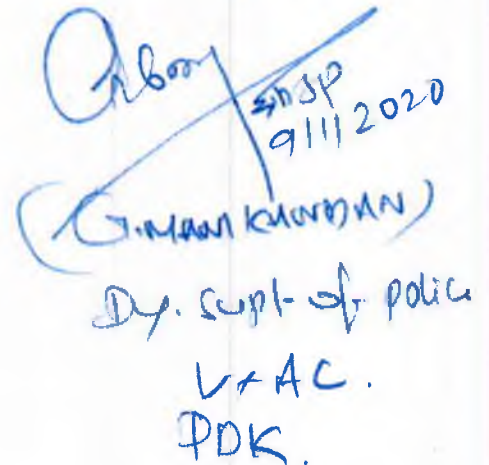 DSP
9/11/2020
(G.MANIKANDAN)
Dy. Supt. of police
V&AC.
PDK.